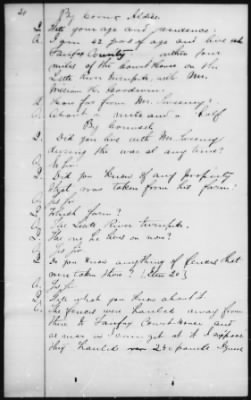 By Com'r Aldis
Q. State your age and residence.
A. I am 42 years of age and live in
Fairfax County within four
miles of the Court House on the
Little River Turnpike, with Mr.
William H. Goodwin.
Q. How far from Mr. Sweeny?
A. About a mile and a half
By Counsel.
Q. Did you live with Mr. Sweeny
during the war at any time?
A. No Sir
Q. Did you know of any property
that was taken from his farm?
A. Yes Sir
Q. Which farm?
A. The Little River turnpike.
Q. The one he lives on now?
A. Yes Sir
Q. Do you know anything of fences that
were taken there? (Item 20)
A. Yes Sir
Q. State what you know about it
A. The fences were hauled away from
there to Fairfax Court House and
as near as I can get at it I suppose
they hauled 25 panels